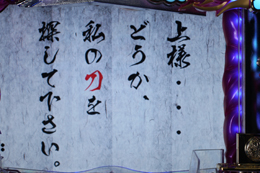 上様・・・
どうか、
私の刀を
探して下さい。